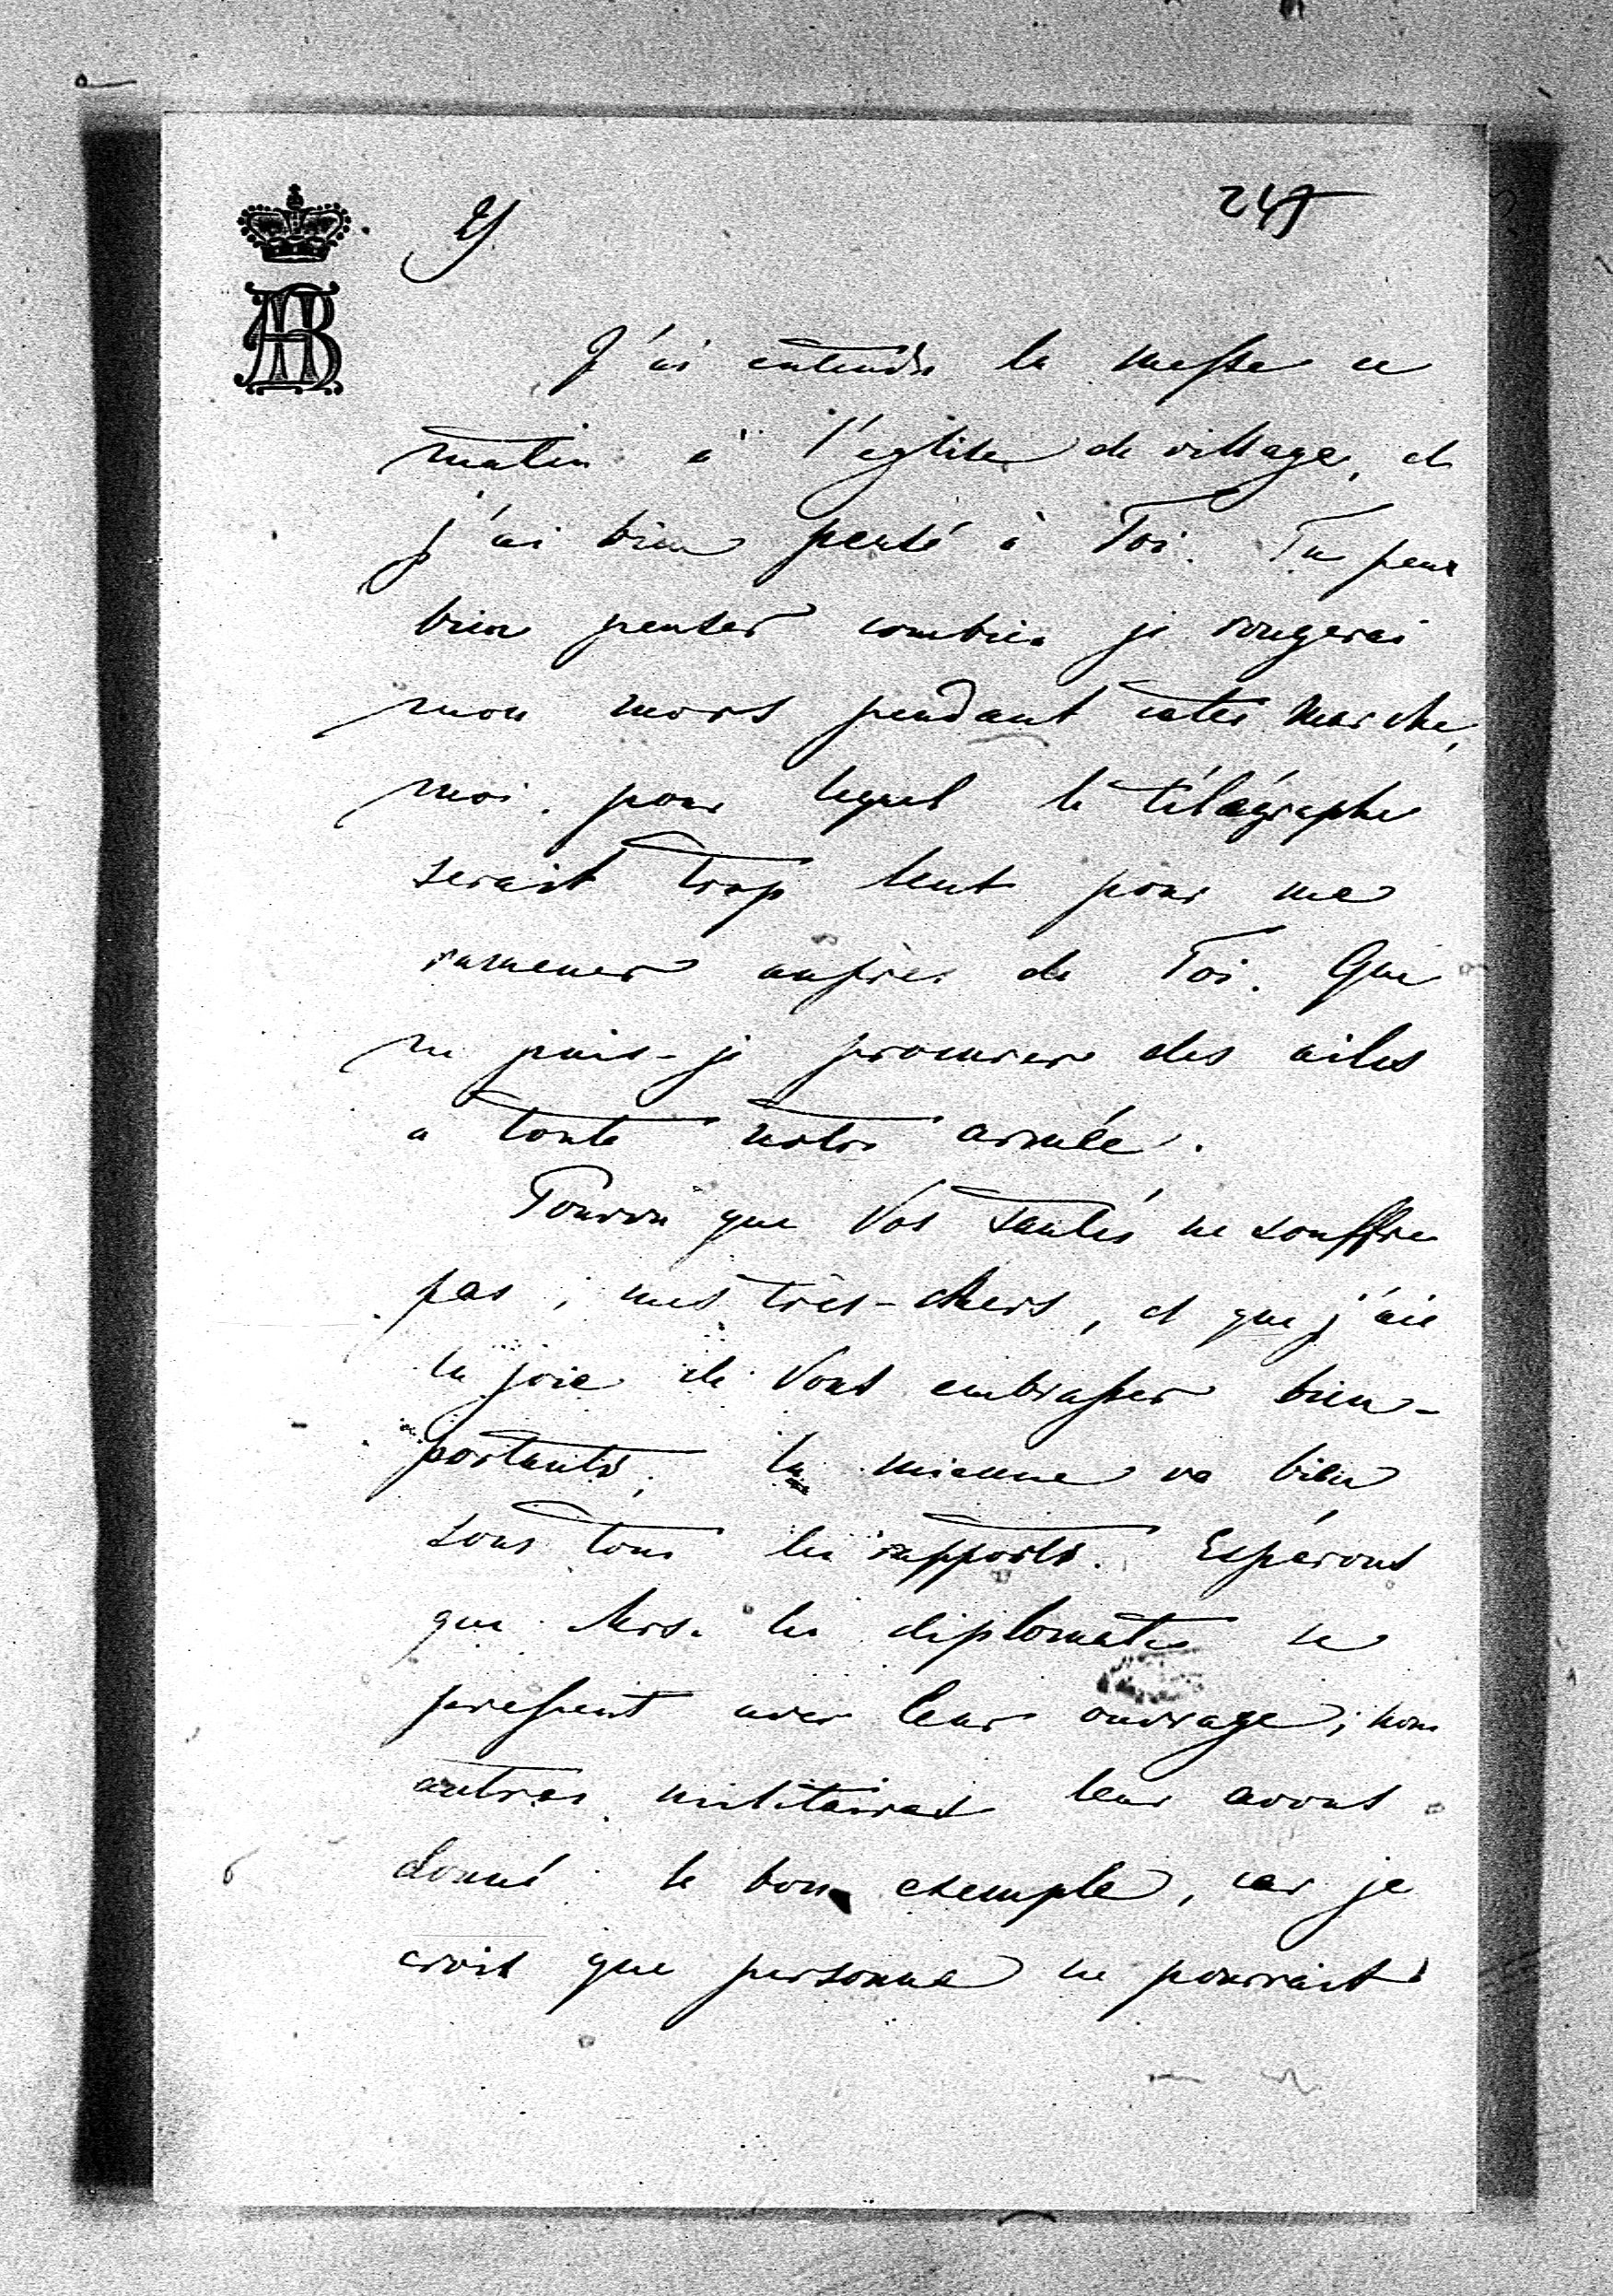 245
J'ai entendu la messe ce
matin à l'église de village, et
j'ai bien pensé à Toi. Tu peux
bien penser combien je rongerai
mon mors pendant cette marche,
moi pour lequel le télégraphe
serait trop lent pour me
ramener auprès de Toi. Que
ne puis-je procurer des ailes
à toute notre armée.
Pourvu que Vos santés ne souffre
pas, mes très-chers, et que j'aie
la joie de Vous embrasser bien-
portants; la mienne va bien
sous tous les rapports. Espérons
que Mrs. les diplomates se
pressent avec leur ouvrage; nous
autres militaires leur avons
donné le bon exemple, car je
crois que personne ne pourrait